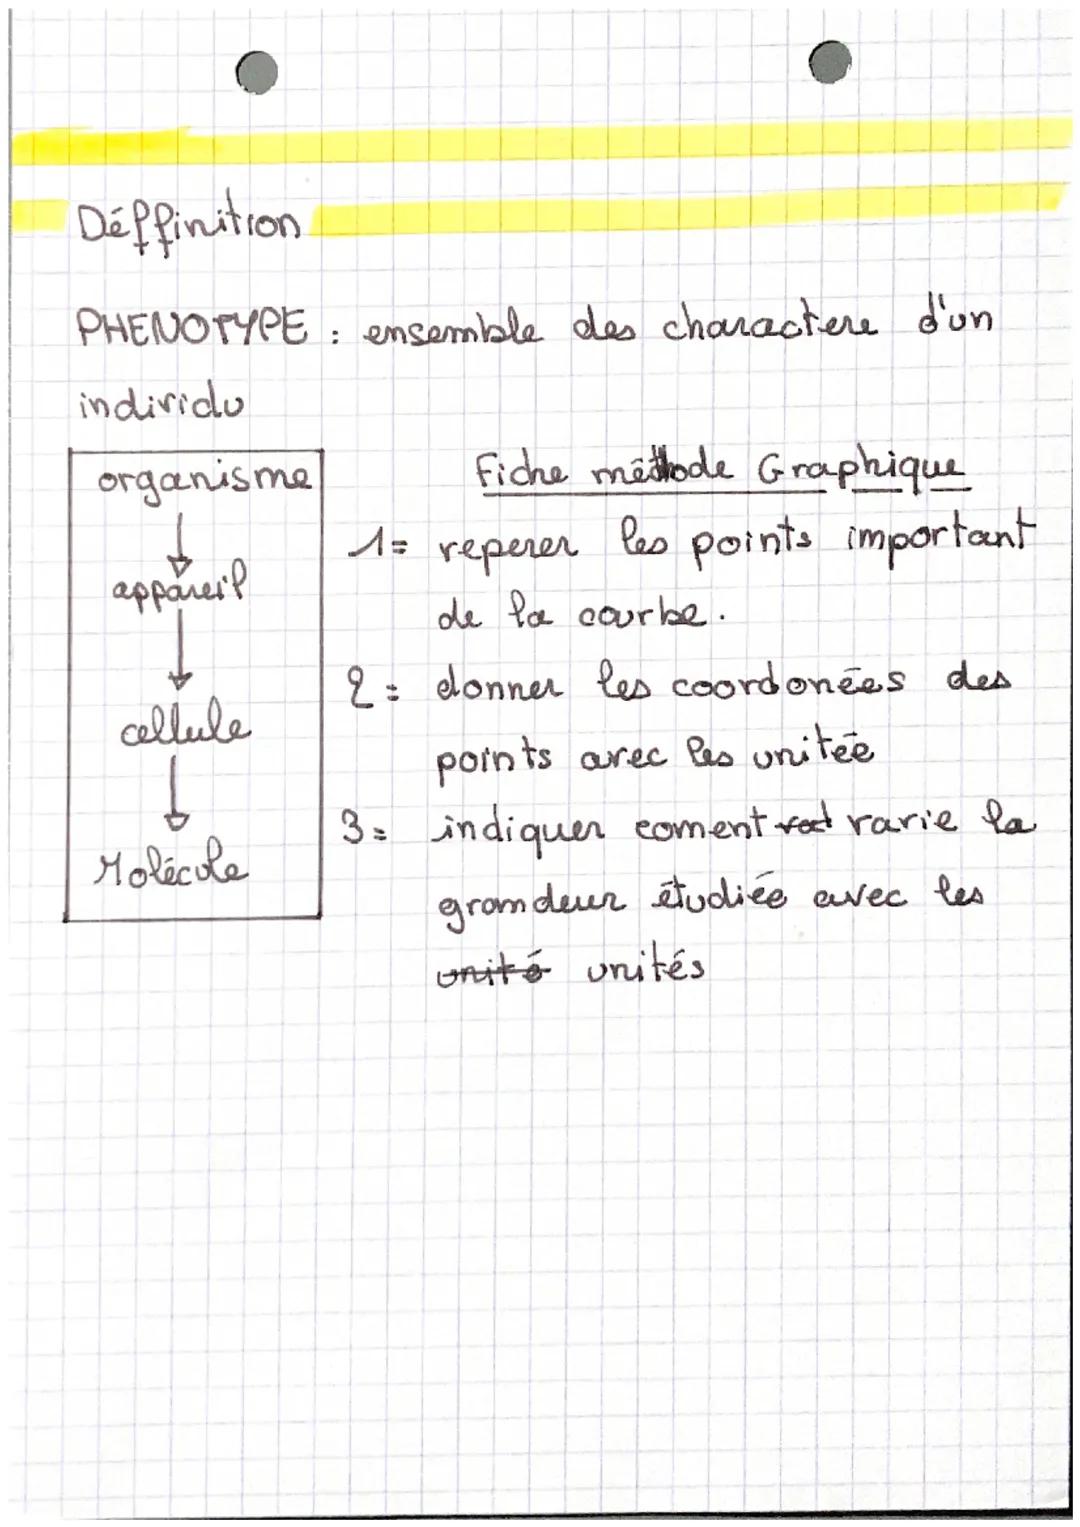 Déffinition
PHENOTYPE : ensemble des charactere d'un
individu
organisme
appareil
cellule
Molécule
Fiche méthode Graphique
1= reperer les points important
de la courbe.
2= donner les coordonées des
points avec les unitée
3= indiquer coment varie la
grandeur étudiée avec les
unité unités